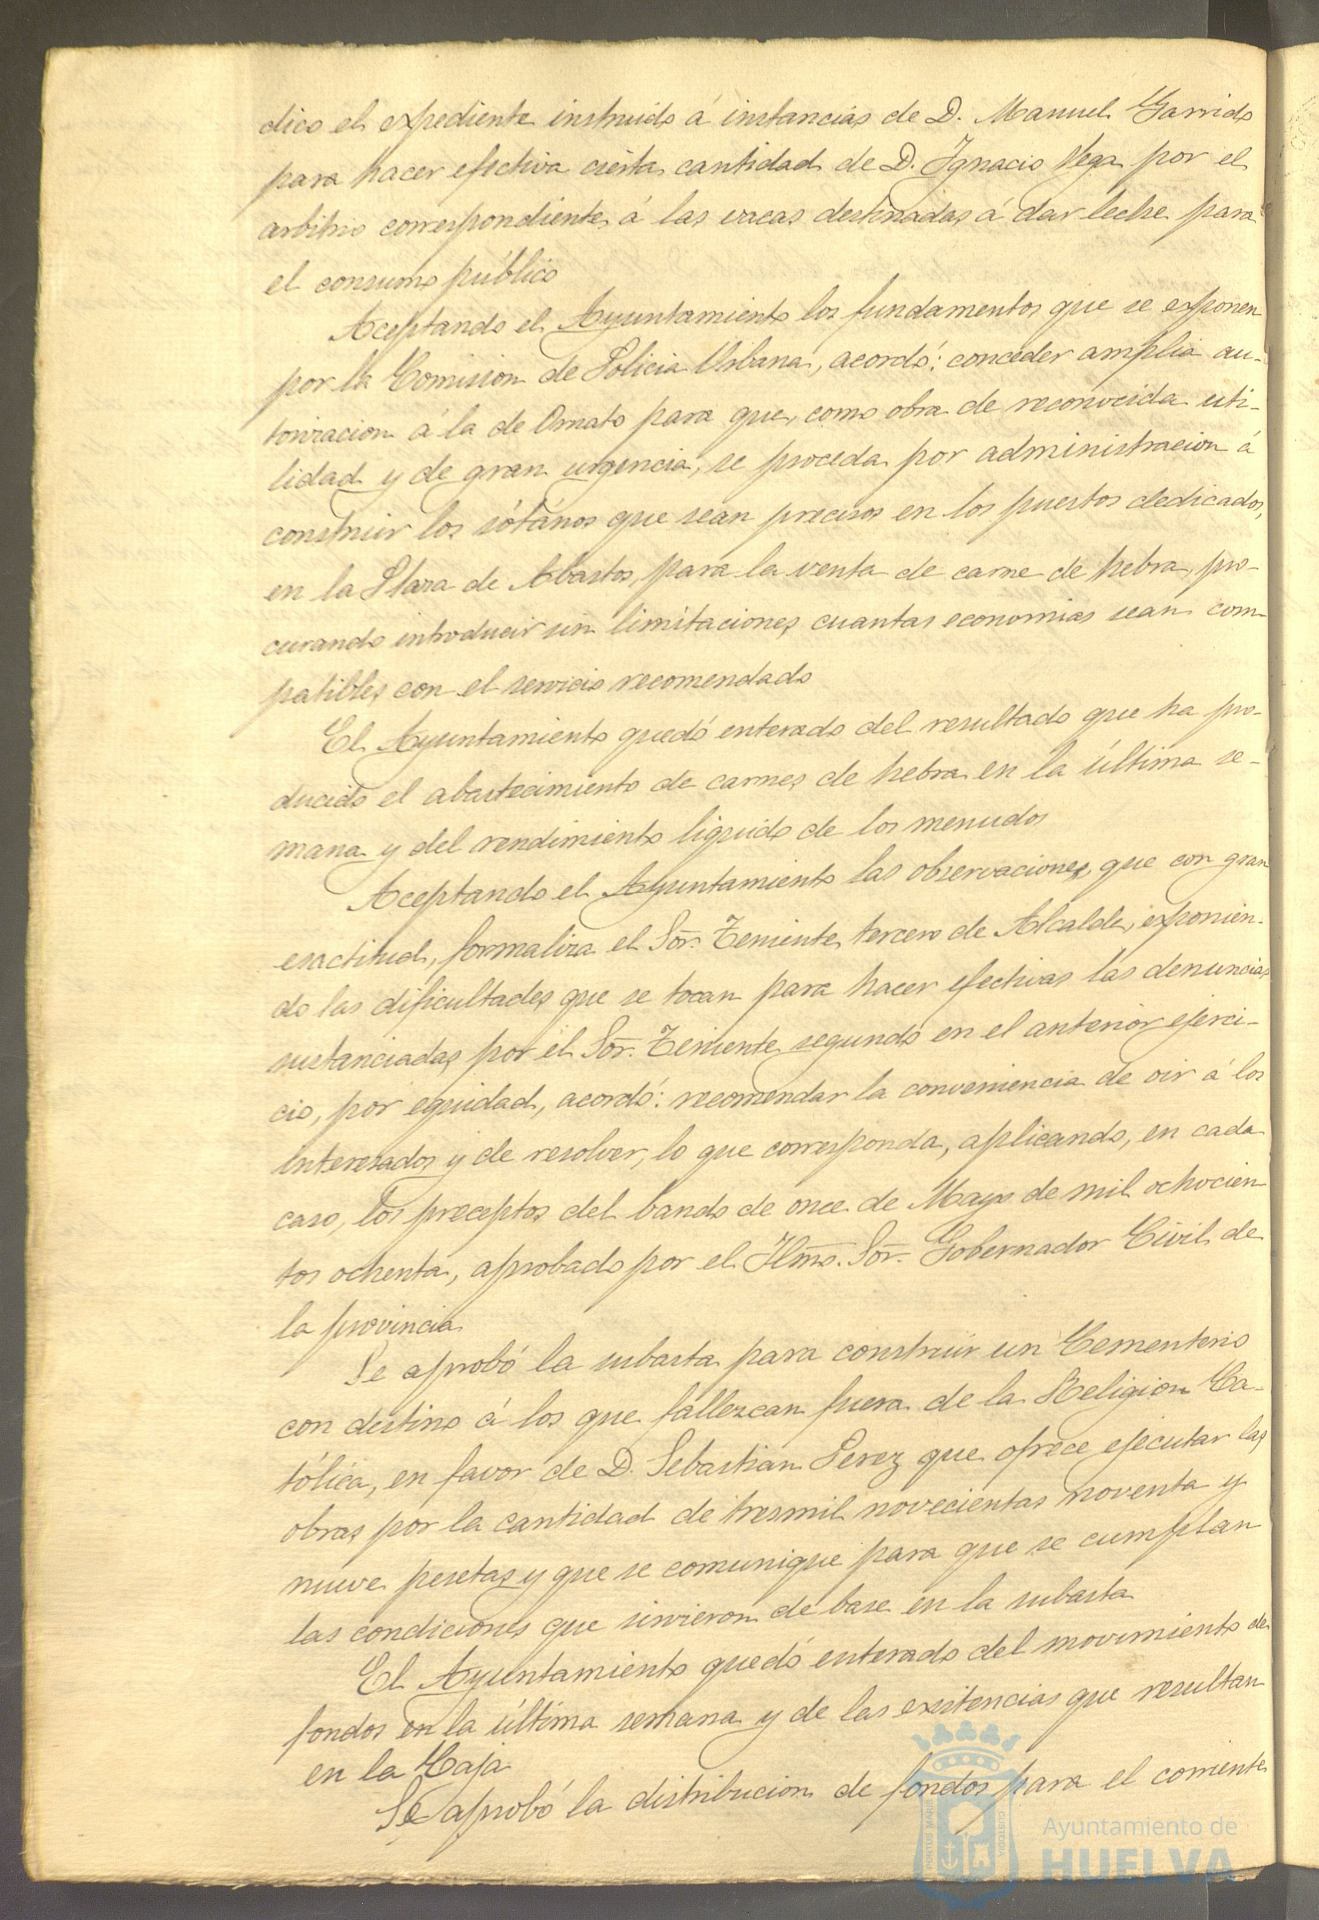 dico el expediente instruido á instancias de D. Manuel Garrido
para hacer efectiva cierta cantidad de D. Ignacio Vega por el
arbitrio correspondiente á las vacas destinadas á dar leche para
el consumo público
Aceptando el Ayuntamiento los fundamentos que se exponen
por la Comision de Policia Urbana, acordó: conceder amplia au-
torizacion á la de Ornato para que, como obra de reconocida uti-
lidad y de gran urgencia, se proceda por administracion á
construir los sótanos que sean precisos en los puestos dedicados,
en la Plaza de Abastos, para la venta de carne de hebra, pro-
curando introducir sin limitaciones cuantas economias sean com-
patibles con el servicio recomendado
El Ayuntamiento quedó enterado del resultado que ha pro-
ducido el abastecimiento de carnes de hebra en la última se-
mana y del rendimiento liquido de los menudos
Aceptando el Ayuntamiento las observaciones que con gran
esactitud, formaliza el Sor. Teniente tercero de Alcalde, exponien-
do las dificultades que se tocan para hacer efectivas las denuncias
sustanciadas por el Sor. Teniente segundo en el anterior ejerci-
cio, por equidad, acordó: recomendar la conveniencia de oir á los
interesados y de resolver, lo que corresponda, aplicando, en cada
caso, los preceptos del bando de once de Mayo de mil ochocien
tos ochenta, aprobado por el Ilmo. Sor. Gobernador Civil de
la provincia
Se aprobó la subasta para construir un Cementerio
con destino á los que fallezcan fuera de la Religion Ca-
tólica, en favor de D. Sebastian Perez que ofrece ejecutar las
obras por la cantidad de tresmil novecientas noventa y
nueve pesetas y que se comunique para que se cumplan
las condiciones que sirvieron de base en la subasta
El Ayuntamiento quedó enterado del movimiento de
fondos en la última semana y de las existencias que resultan
en la Caja
Se aprobó la distribucion de fondos para el corriente
Ayuntamiento de
HUELVA